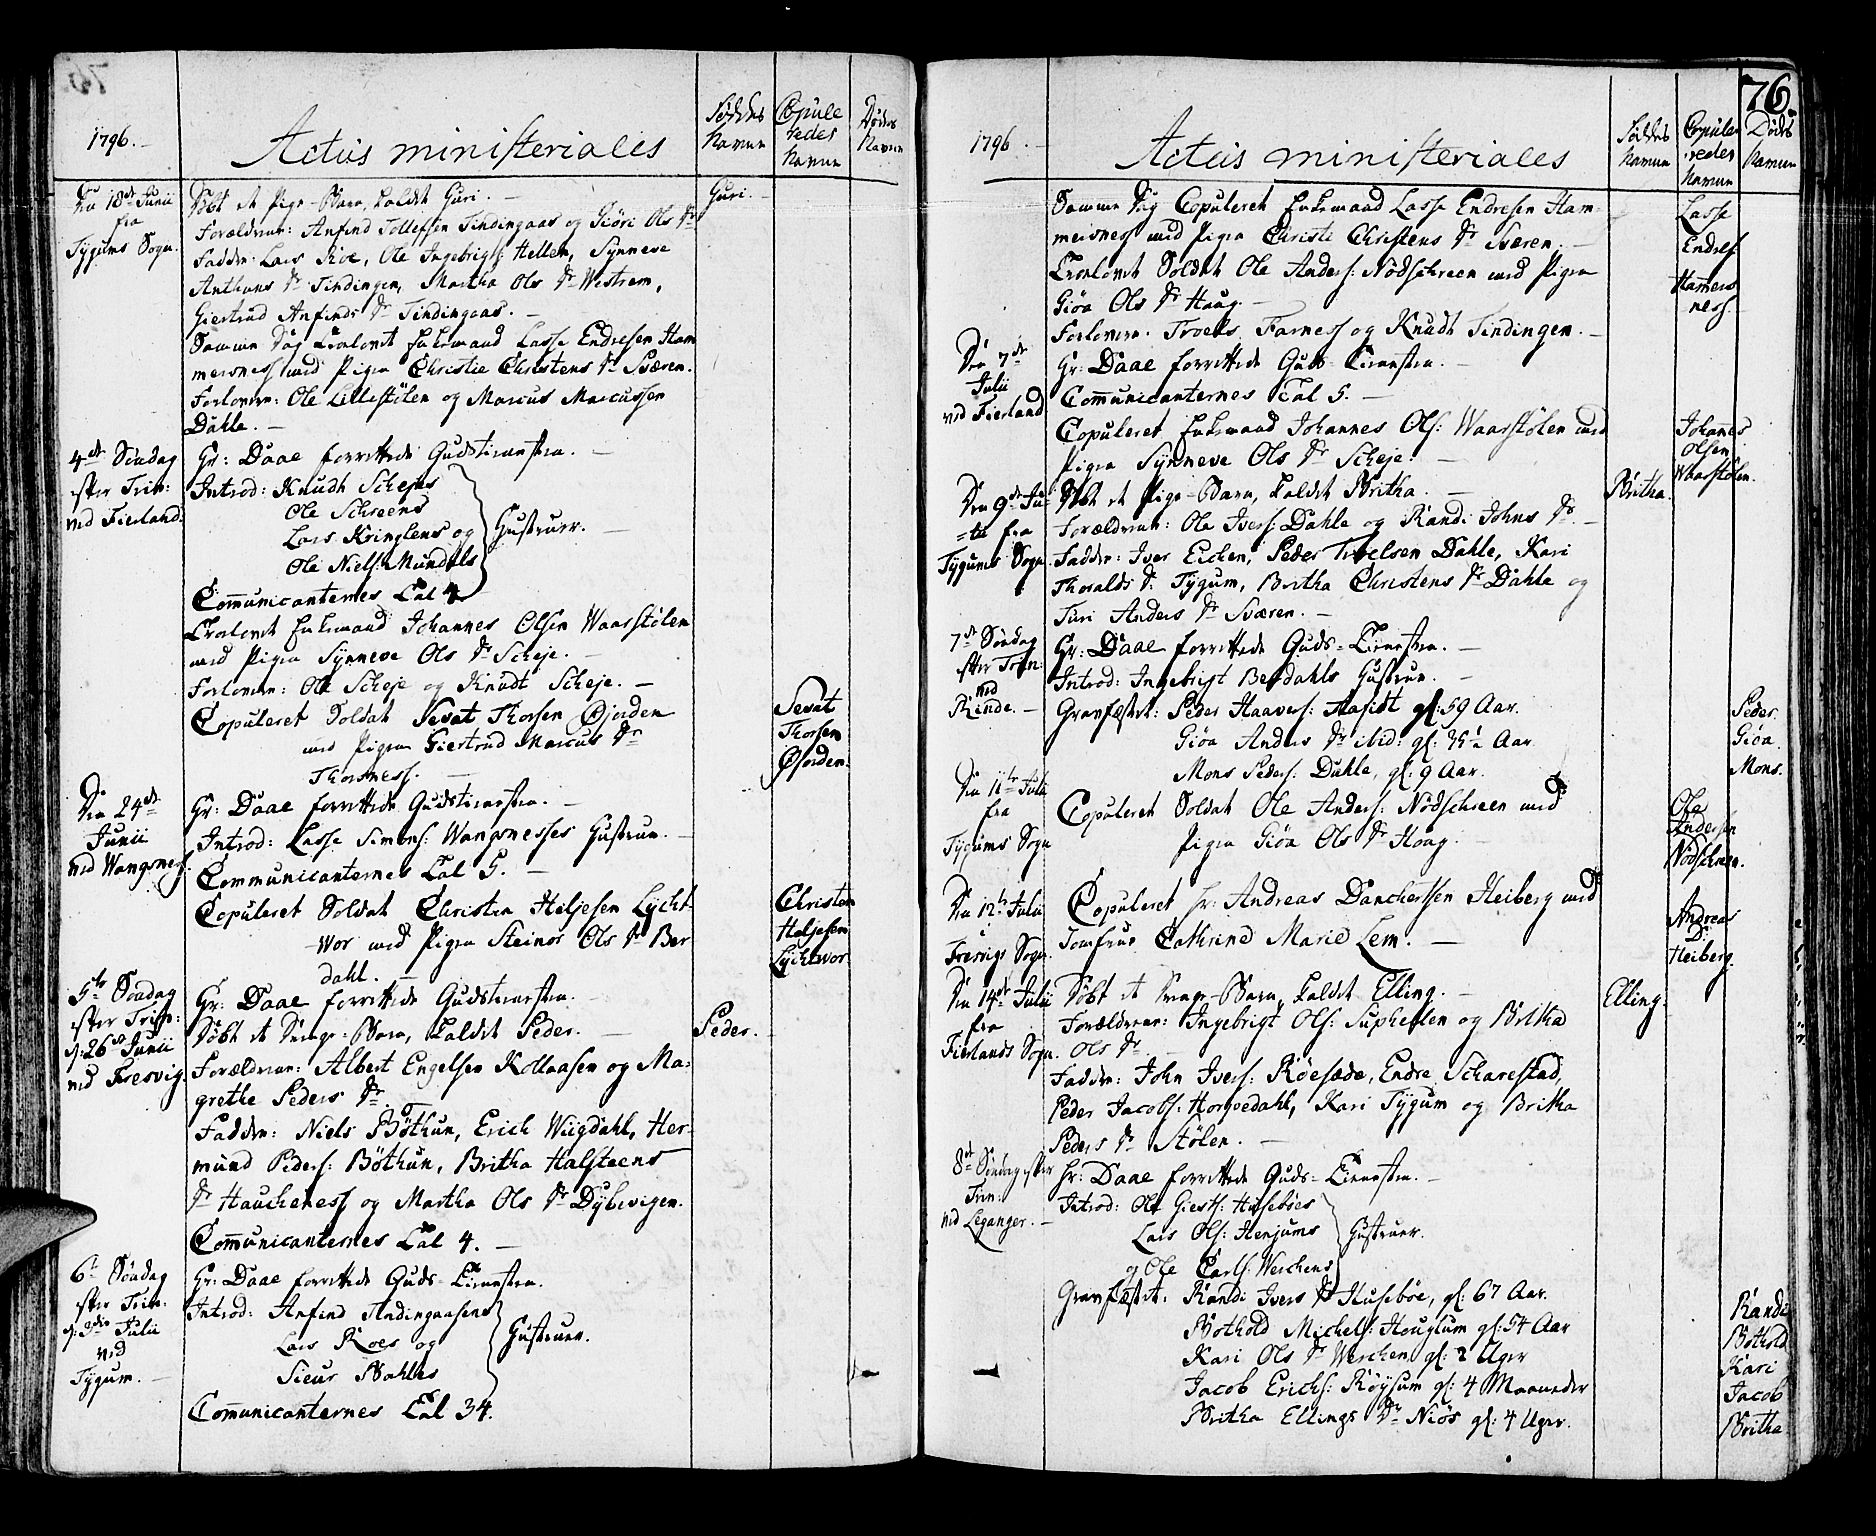 1796.
Actus ministeriales
Fødtes Navne
Copule redes Navne
Dødes Navne
Den 18de Junii fra Tygums Sogn.
Døbt et Pige-Barn, kaldet Guri. —
Guri.
Forældrene: Anfind Tollefsen Tindingaas og Giöri Ols Dr
Faddere: Lars Roe, Ole Ingebrigts: Hellen, Synneve
Anthons Dr Tindingen, Martha Ols Dr Westrem,
Giertrud Anfinds Dr Tindingaas. —
Samme Dag Trolovet Enkemand Lasse Endresen Ham
mersness med Pigen Christie Christens Dr Sværen.
Forlovere: Ole Lillestölen og Marcus Marcussen
Dahle. —
4de Söndag efter Trin: ved Fierland.
Hr: Daae forrettede Gudstienesten. —
Introd: Knudt Schejes
Ole Schreens
Lars Kringlens og
Ole Niels: Mundals
Hustruer. —
Communicanternes Tal 4
Trolovet Enkemand Johannes Olsen Waarstölen
med Pigen Synneve Ols Dr Scheje. —
Forlovere: Ole Scheje og Knudt Scheje. —
Copuleret Soldat Sevat Thorsen Öjorden
med Pigen Giertrud Marcus Dr
Thorsness. —
Sevat Thorsen Öjorden.
Den 24de Junii ved Wangsness.
Hr: Daae forrettede Gudstienesten. —
Introd: Lasse Simons: Wangsnesses Hustrue. —
Communicanternes Tal 5. —
Copuleret Soldat Christen Heljesen Lycht-
wor med Pigen Steinor Ols Dr Ber
dahl. —
Christen Heljesen Lychtwor.
5te Söndag efter Trin: d: 26de Junii ved Fresvig.
Hr: Daae forrettede Gudstienesten. —
Döbt et Drenge-Barn, kaldet Peder. —
Peder.
Forældrene: Albert Engelsen Kollaasen og Ma-
grethe Peders Dr.
Faddere: Niels Böthun, Erich Wiigdahl, Her-
mund Peders: Böthun, Britha Halsteens
Dr Hauckeness og Martha Ols Dr Dybevigen.
Communicanternes Tal 4. —
6te Söndag efter Trin: d: 3die Julii ved Tygum. —
Hr: Daae forrettede Guds-Tienesten.
Introd: Anfind Tindingaasens
Lars Roes og
Sieur Bahles
Hustruer.
Communicanternes Tal 34.
76.
1796.
Actus ministeriales
Fødtes Navne
Copule redes Navne
Dødes Navne
Samme Dag Copuleret Enkemand Lasse Endresen Ham-
mersness med Pigen Christi Christens Dr Sværen. —
Lasse Endres: Hamersness.
Trolovet Soldat Ole Anders: Nödschreen med Pigen
Giöa Ols Dr Haug. —
Forlovere: Troels Farness og Knudt Tindingen. —
Den 7de Julii ved Fierland
Hr: Daae forrettede Guds-Tienesten. —
Communicanternes Tal 5. —
Copuleret Enkemand Johannes Ols: Waarstölen med
Pigen Synneve Ols Dr Scheje. —
Johanes Olsen Waarstölen.
Den 9de Ju-
lii fra Tygums Sogn.
Döbt et Pige-Barn, kaldet Britha. —
Britha.
Forældrene: Ole Ivers: Dahle og Randi Johns Dr. —
Faddere: Iver Eichen, Peder Troelsen Dahle, Kari
Thoralds Dr Tygum, Britha Christens Dr Dahle og
Turi Anders Dr Sværen. —
7de Söndag efter Trin: ved Rinde. —
Hr: Daae forrettede Guds-Tienesten. —
Introd: Ingebrigt Berdahls Hustrue. —
Gravfæstet: Peder Haavers: Hafidt gl: 59 Aar.
Giöa Anders Dr ibid: gl: 35½ Aar.
Mons Peders: Dahle, gl: 9 Aar.
Peder.
Giöa.
Mons.
Den 11te Julii fra Tygums Sogn
Copuleret Soldat Ole Anders: Nödschreen med
Pigen Giöa Ols Dr Houg. —
Ole Andersen Nödschreen.
Den 12te Julii i Fresvigs Sogn.
Copuleret Hr: Andreas Danchertsen Heiberg med
Jomfrue Cathrine Marie Lem. —
Andreas D: Heiberg.
Den 14de Julii fra Fierlands Sogn.
Döbt et Drenge-Barn, kaldet Elling. —
Elling.
Forældrene: Ingebrigt Ols: Suphellen og Britha
Ols Dr —
Faddere: John Ivers: Röesæde, Endre Scharestad,
Peder Jacobs: Horpedahl, Kari Tygum og Britha
Peders Dr Stölen. —
8de Söndag efter Trin: ved Leganger. —
Hr: Daae forrettede Guds-Tienesten. —
Introd: Ole Giests: Huseböes
Lars Ols: Henjums
og Ole Carls: Werchens
Hustruer.
Gravfæstet: Randi Ivers Dr Huseböe, gl: 67 Aar.
Bothold Michels: Houglum gl: 54 Aar
Kari Ols Dr Werchen gl: 2 Uger
Jacob Erichs: Röysum gl: 4 Maaneder
Britha Ellings Dr Niös gl: 4 Uger.
Randi
Bothold
Kari
Jacob
Britha